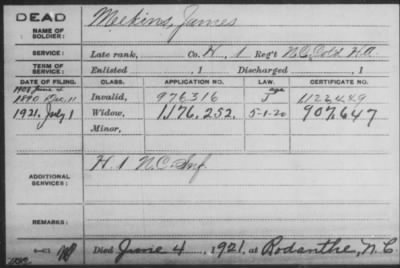 DEAD
NAME OF SOLDIER:
Meekins, James
SERVICE:
Late rank, Co. H, 1 Reg't N.C. Cold. H.A.
TERM OF SERVICE:
Enlisted , 1 Discharged , 1
DATE OF FILING. CLASS. APPLICATION NO. LAW. CERTIFICATE NO.
1908 June 4 age
1890 Dec. 11 Invalid, 976316 J 1122449
1921. July 1 Widow, 1176.252. 5-1-20 907,647
Minor,
ADDITIONAL SERVICES:
H. 1 N.C. Inf.
REMARKS:
Died June 4, 1921, at Rodanthe, N.C.